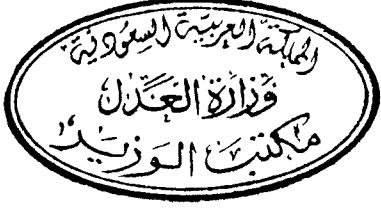 المملكة العربية السعودية
وَزَارَة العَدل
مكتب الوزير